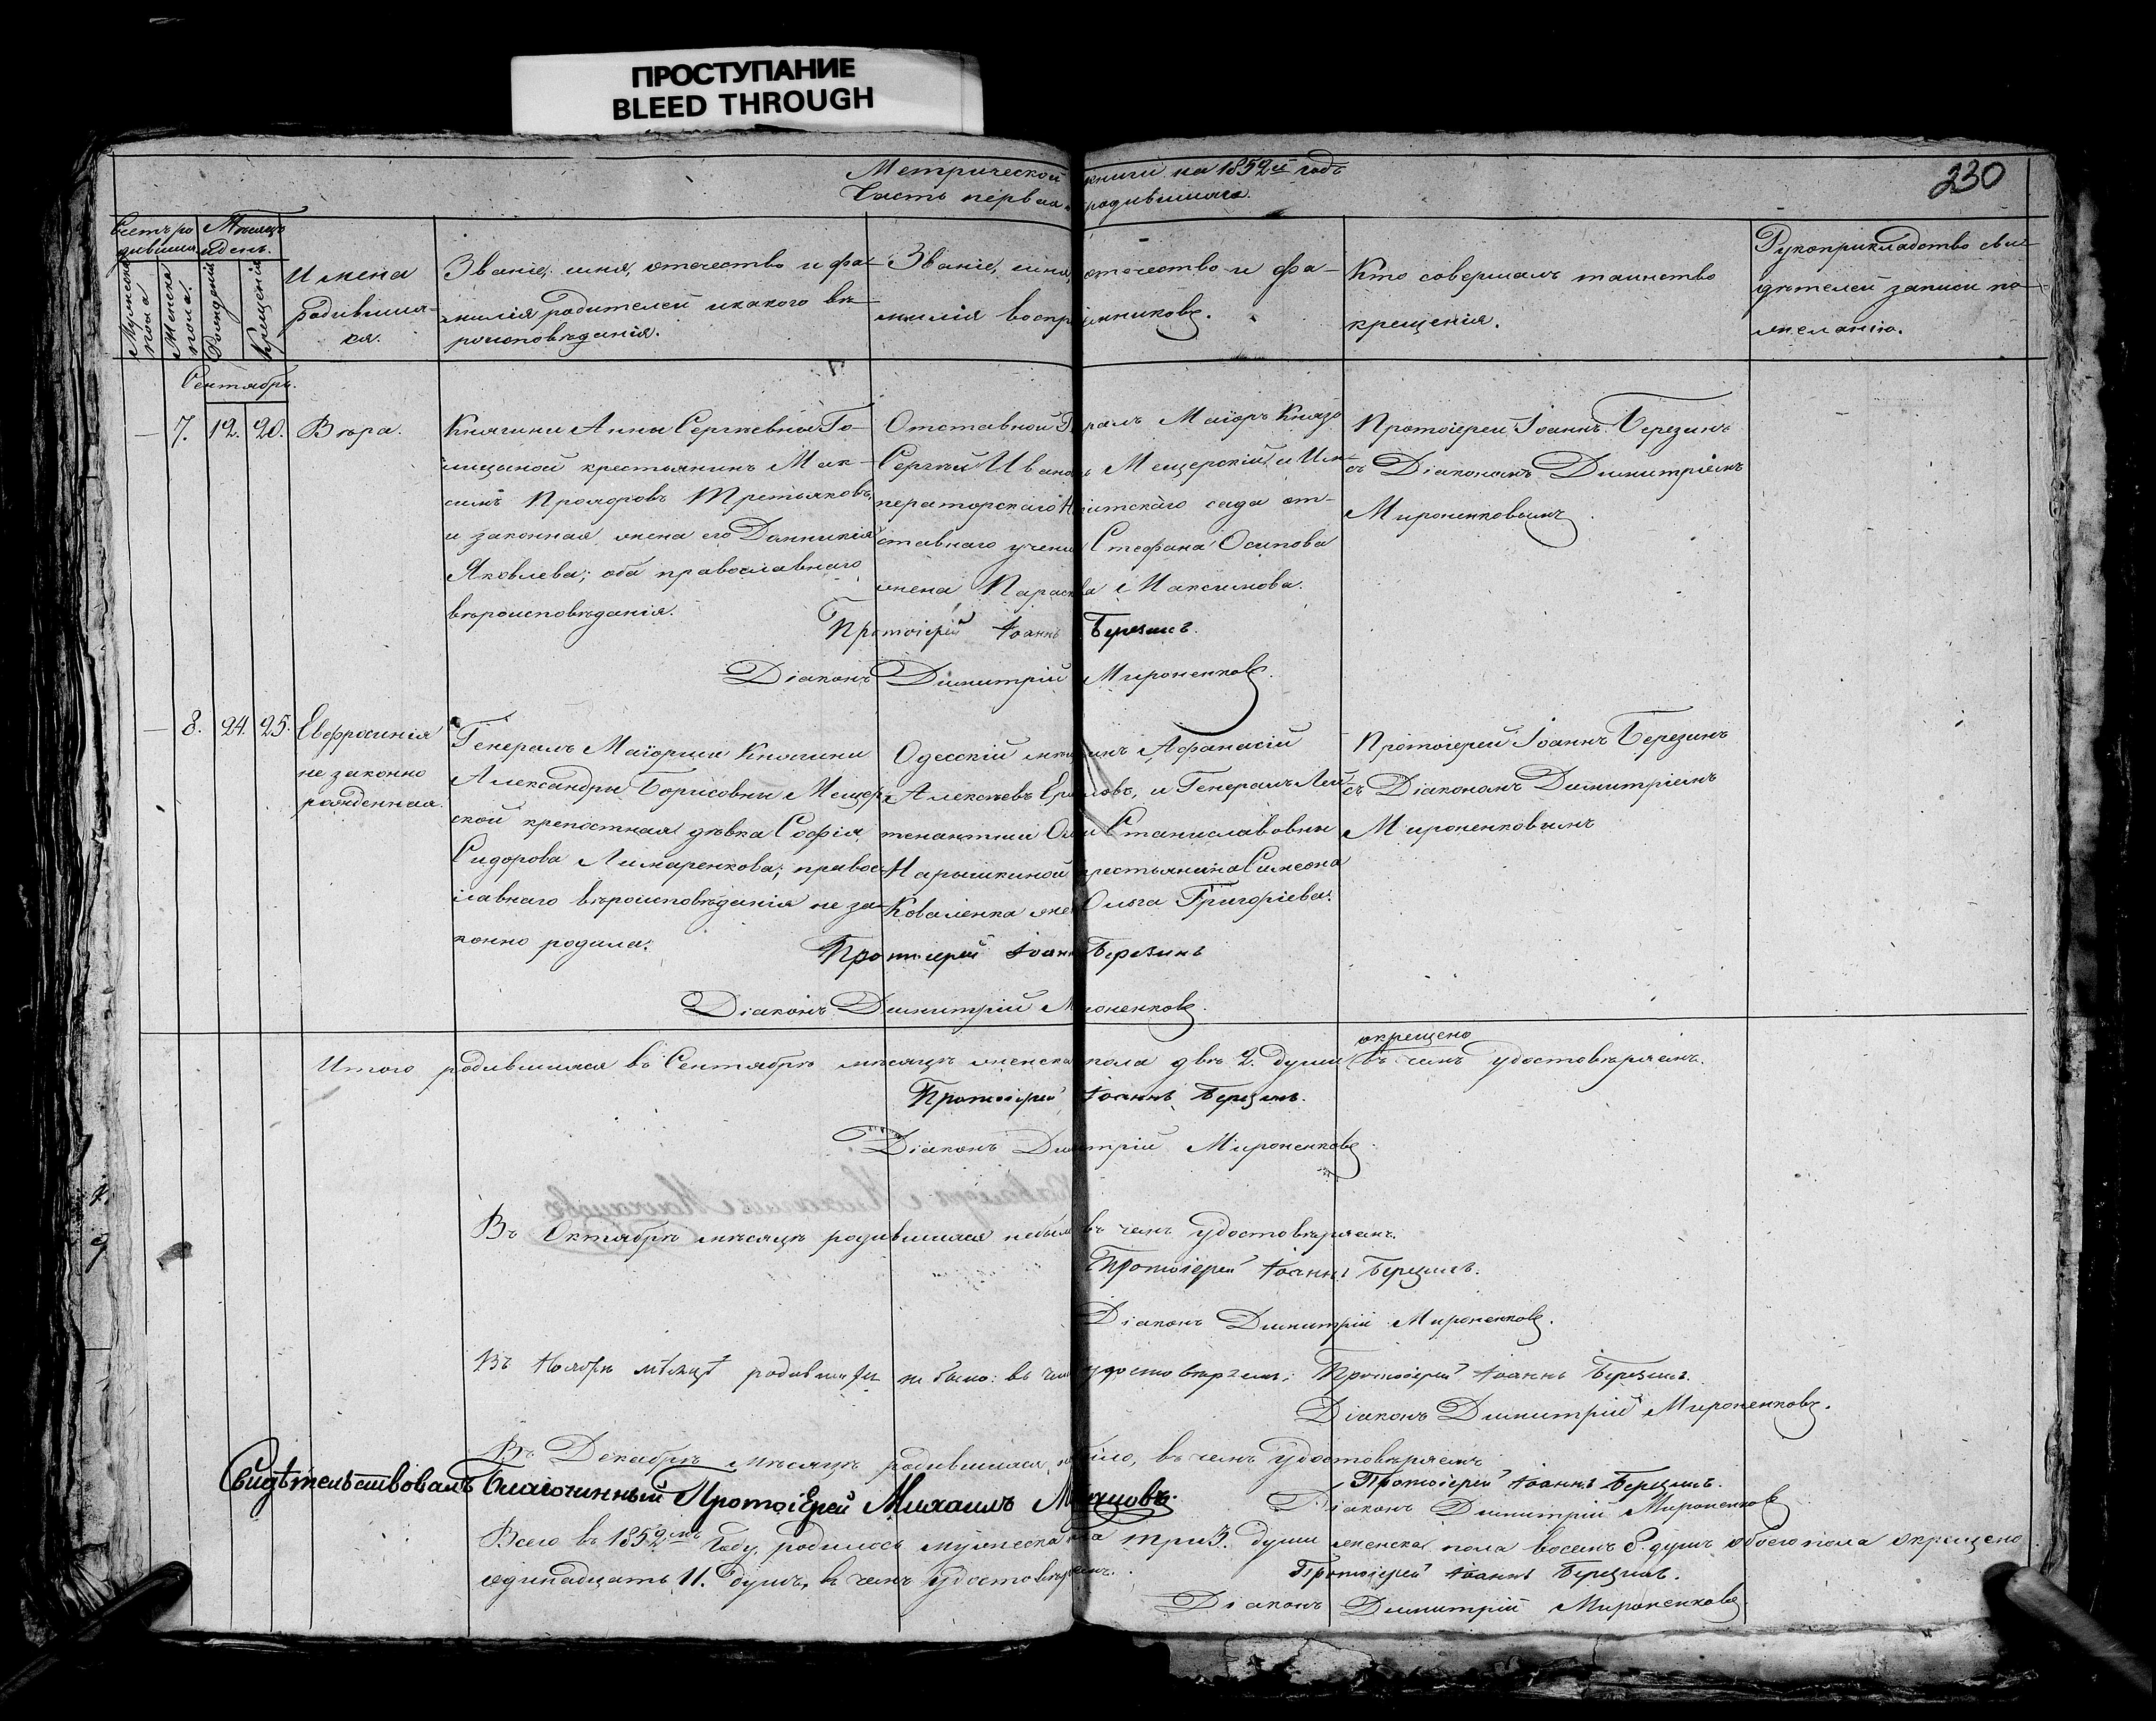 ПРОСТУПАНИЕ
BLEED THROUGH
Метрической книги на 1852й годъ
Часть первая, родившихся.
230
Счетъ ро
дившихся
Мѣсяцъ
и день.
Мужеска
пола
Женска
пола.
Рожденія
Крещенія
Имена
родивших
ся.
Званіе, имя, отечество и фа-
милія родителей и какого вѣ
роисповѣданія.
Званіе, имя, отечество и фа-
милія воспріемниковъ.
Кто совершалъ таинство
крещенія.
Рукоприкладство сви-
дѣтелей записи по
желанію.
Сентябрь.
— 7. 12. 20. Вѣра.
Княгини Анны Сергѣевны Го-
лицыной крестьянинъ Мак-
симъ Прохоровъ Третьяковъ,
и законная жена его Домникія
Яковлева; оба православнаго
вѣроисповѣданія.
Отставной Маіоръ Князь
Сергѣй Мещерскій, и Им-
ператорскаго сада от-
ставнаго Стефана Осипова
жена Максимова.
Протоіерей Іоаннъ Березинъ
съ Діакономъ Димитріемъ
Мироненковымъ
Протоіерей Іоаннъ Березинъ.
Діаконъ Димитрій Мироненковъ.
— 8. 24. 25. Евфросинія
не законно
рожденная.
Генералъ Маіорши Княгини
Александры Борисовны Мещер-
ской крепостная дѣвка Софія
Сидорова Лимаренкова; правос-
лавнаго вѣроисповѣданія не за-
конно родила.
Одесскій Афанасій
Алексѣевъ и Генералъ Лей-
тенантши Станиславовны
Нарышкиной крестьянина Симеона
Коваленка Ольга Григоріева.
Протоіерей Іоаннъ Березинъ
съ Діакономъ Димитріемъ
Мироненковымъ
Протоіерей Іоаннъ Березинъ
Діаконъ Димитрій Мироненковъ.
окрещено
Итого родившихся въ Сентябрѣ мѣсяцѣ женска пола двѣ 2. души въ чемъ удостовѣряемъ.
Протоіерей Іоаннъ Березинъ.
Діаконъ Димитрій Мироненковъ.
Въ Октябрѣ мѣсяцѣ родившихся небыло въ чемъ удостовѣряемъ.
Протоіерей Іоаннъ Березинъ.
Діаконъ Димитрій Мироненковъ.
Въ Ноябрѣ мѣсяцѣ родившихся не было: въ чемъ удостовѣряемъ. Протоіерей Іоаннъ Березинъ.
Діаконъ Димитрій Мироненковъ.
Въ Декабрѣ мѣсяцѣ родившихся небыло, въ чемъ удостовѣряемъ
Протоіерей Іоаннъ Березинъ.
Свидѣтельствовалъ Благочинный Протоіерей Михаилъ
Діаконъ Димитрій Мироненковъ
Всего въ 1852мъ Году, родилось мужеска пола три 3. души женска пола восемь 8. душъ обоего пола окрещено
одинадцать 11. душъ, въ чемъ удостовѣряемъ.
Протоіерей Іоаннъ Березинъ.
Діаконъ Димитрій Мироненковъ